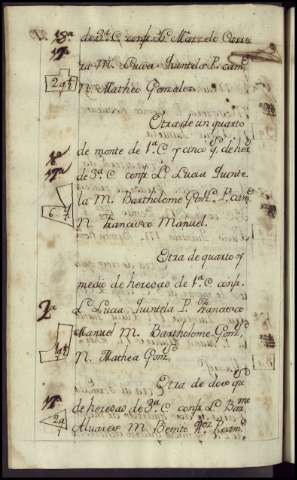 18ª de 3ª C conf. L. Marcelo
17ª M. Lucia Quintela P. camº
2 qs N. Matheo Gonzalez
Otra de un quarto
8ª de monte de 1ª C y cinco qs de her
17ª de 3ª C conf. L. Lucia Quinte
la M. Bartholome Gonz. P. camº
6 N. Francisco Manuel.
Otra de quarto y
medio de heredad de 1ª C conf.
2ª L. Lucia Quintela P. Francisco
Manuel M. Bartholome Gonz.
N. Mathea Gonz.
Otra de dos qs
17ª de heredad de 3ª C conf. L. Bar
2 qs Alvarez M. Benito P. camº